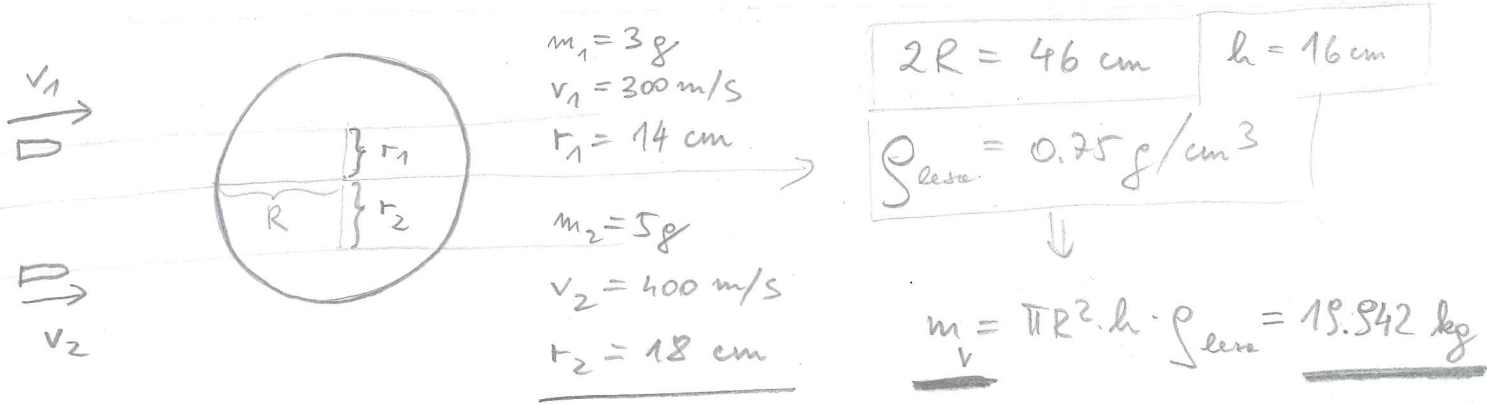 v₁
v₂
r₁
R
r₂
m₁ = 3 g
v₁ = 300 m/s
r₁ = 14 cm
m₂ = 5 g
v₂ = 400 m/s
r₂ = 18 cm
2R = 46 cm
h = 16 cm
ρlesa = 0.75 g/cm³
⇓
mᵥ = πR²·h·ρlesa = 19.942 kg